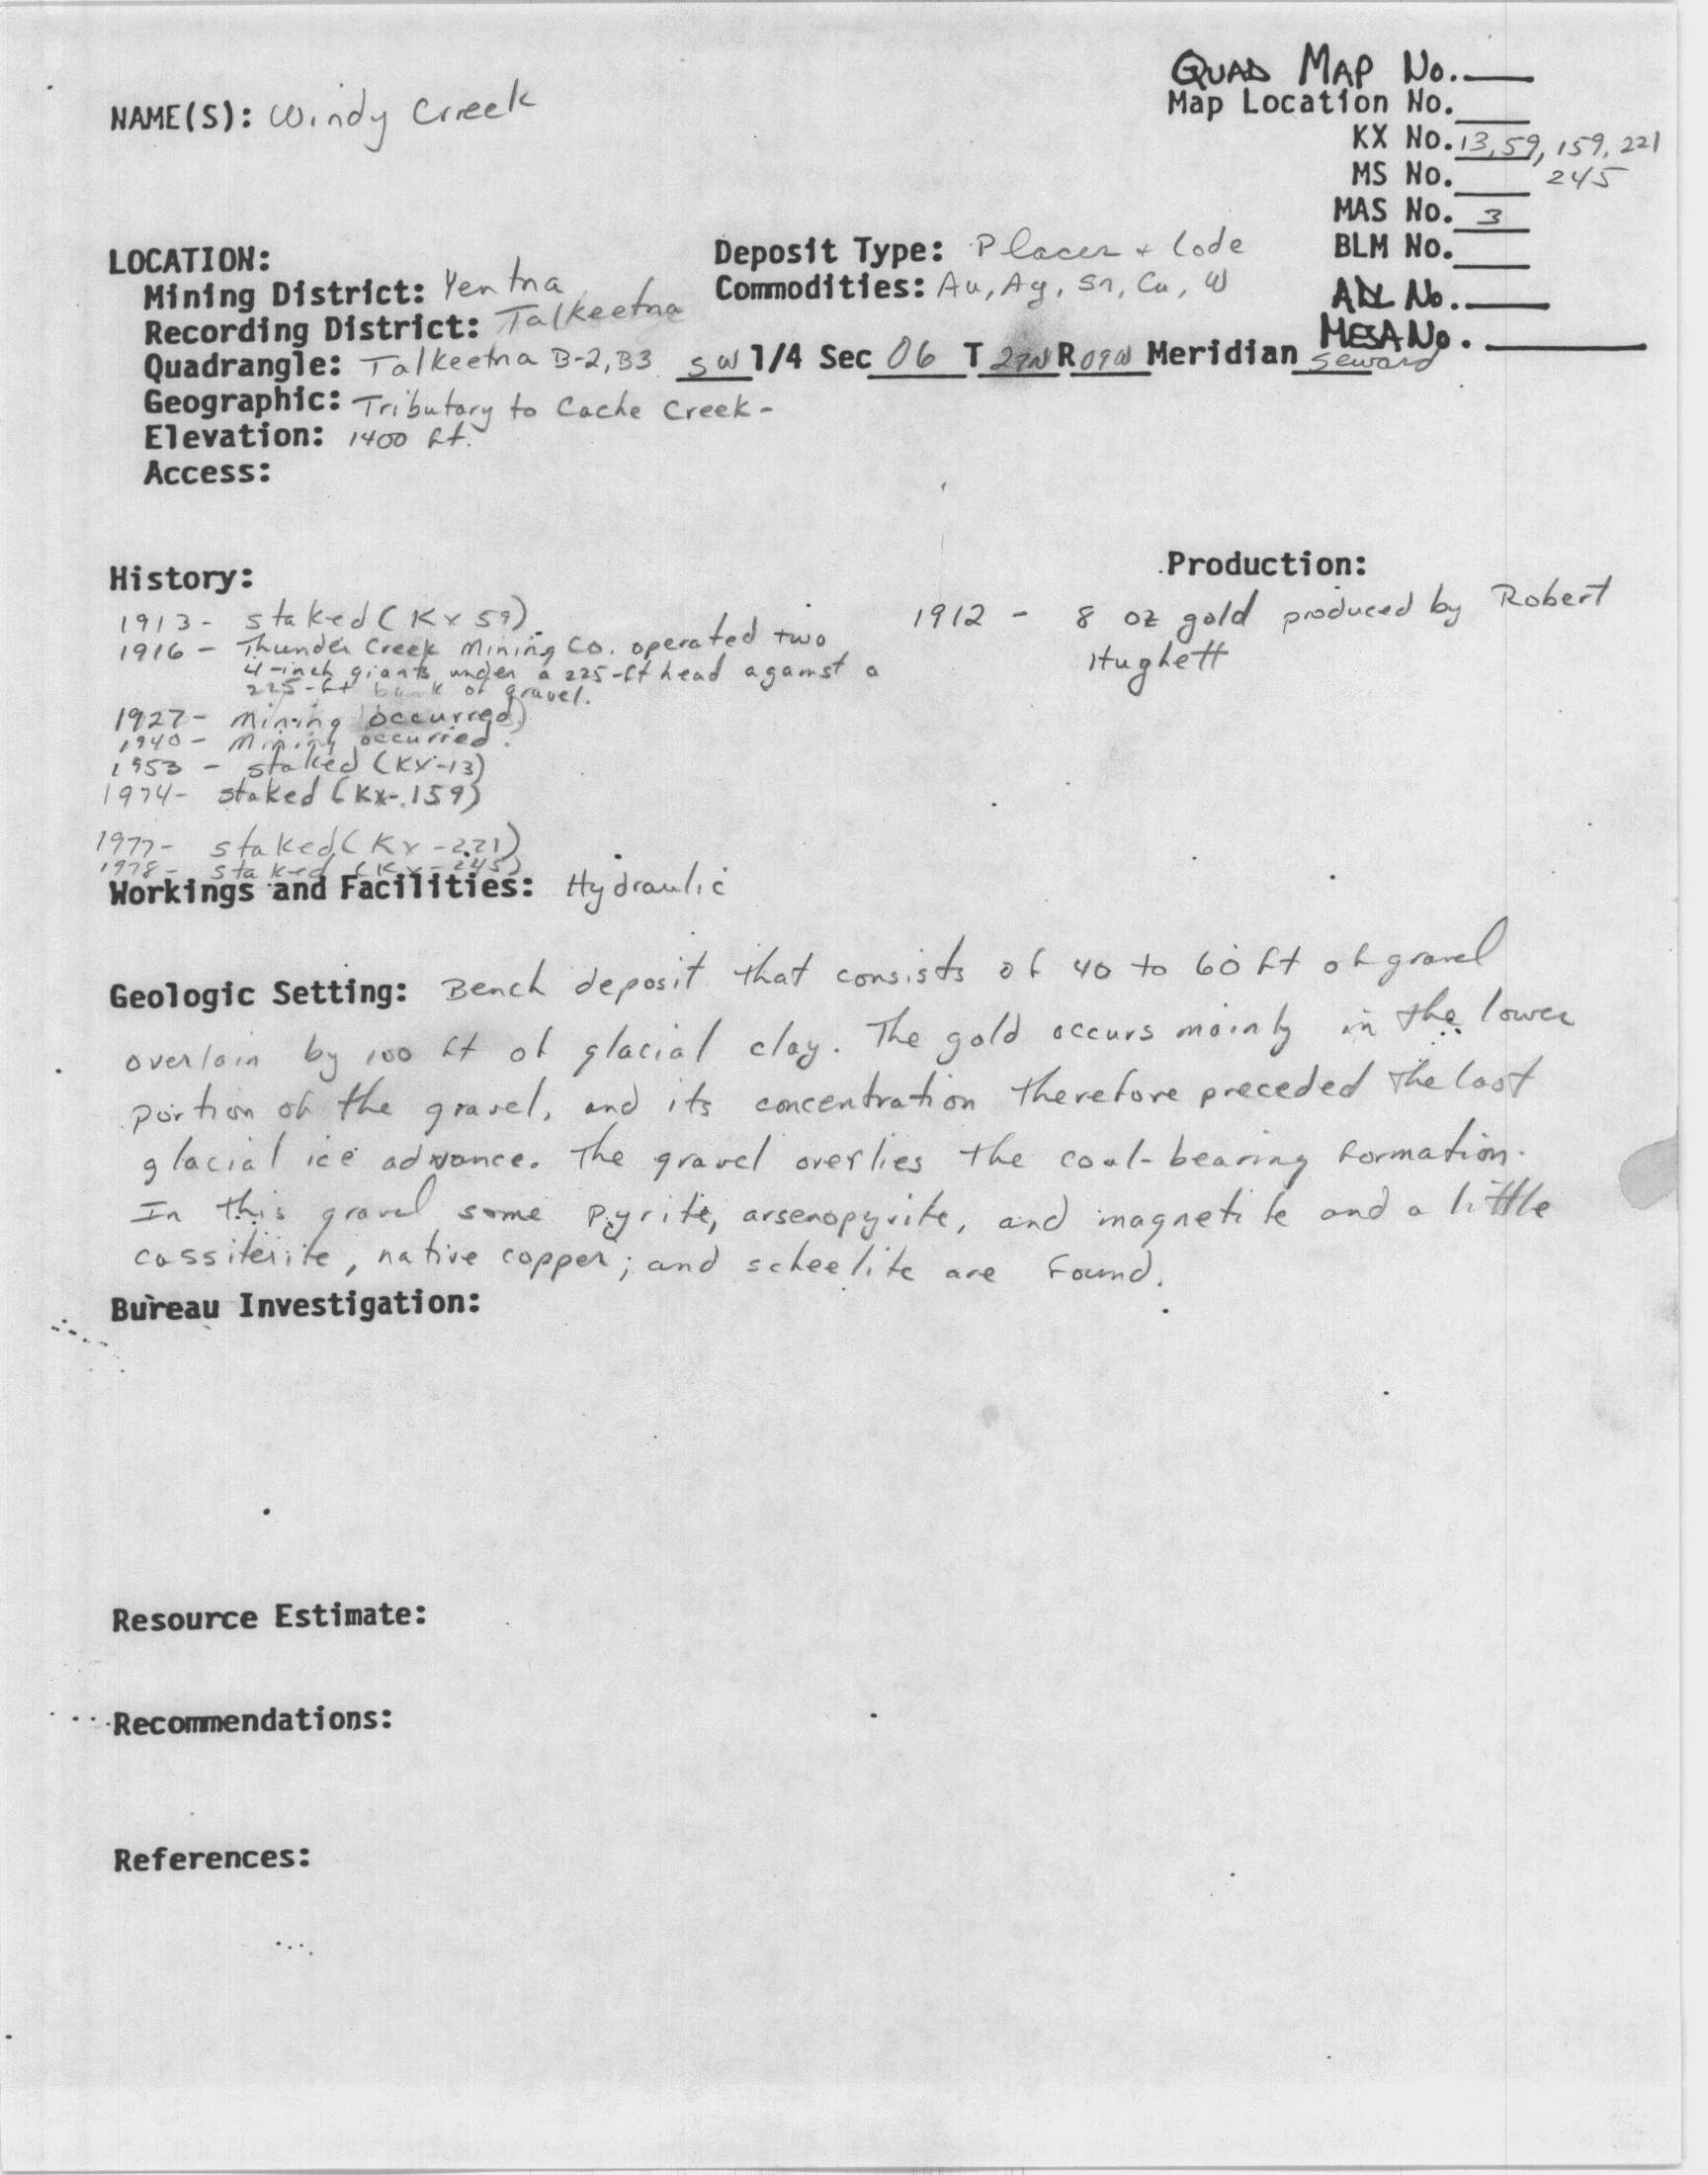 QUAD MAP No.
NAME(S): Windy Creek
Map Location No.
KX No. 13, 59, 159, 221
MS No. 245
MAS No. 3
LOCATION:
Deposit Type: Placer + lode
BLM No.
Mining District: Yentna
Commodities: Au, Ag, Sn, Cu, W
ADL No.
Recording District: Talkeetna
MESA No.
Quadrangle: Talkeetna B-2, B3 SW 1/4 Sec 06 T 27N R 09W Meridian Seward
Geographic: Tributary to Cache Creek -
Elevation: 1400 ft.
Access:
History:
Production:
1913 - staked (KX 59).
1916 - Thunder Creek Mining Co. operated two
4-inch giants under a 225-ft head against a
225-ft bank of gravel.
1927 - mining occurred)
1940 - Mining occurred.
1953 - staked (KX-13)
1974 - staked (KX-159)
1977 - staked (KX-221)
1978 - staked (KX-245)
1912 - 8 oz gold produced by Robert
Hughett
Workings and Facilities: Hydraulic
Geologic Setting: Bench deposit that consists of 40 to 60 ft of gravel
overlain by 100 ft of glacial clay. The gold occurs mainly in the lower
portion of the gravel, and its concentration therefore preceded the last
glacial ice advance. The gravel overlies the coal-bearing formation.
In this gravel some pyrite, arsenopyrite, and magnetite and a little
cassiterite, native copper; and scheelite are found.
Bureau Investigation:
Resource Estimate:
Recommendations:
References: